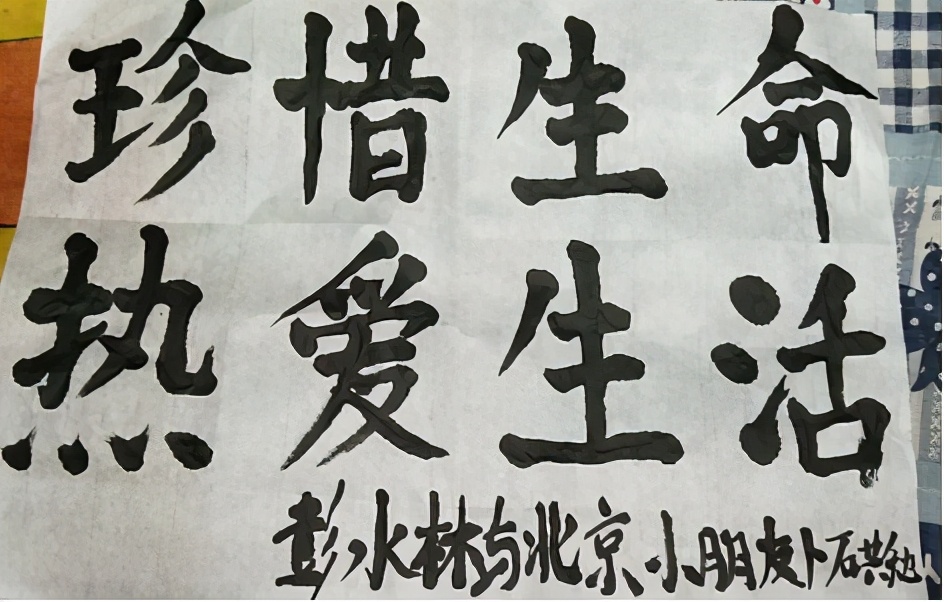 珍惜生命
热爱生活
彭水林与北京小朋友卜石共勉